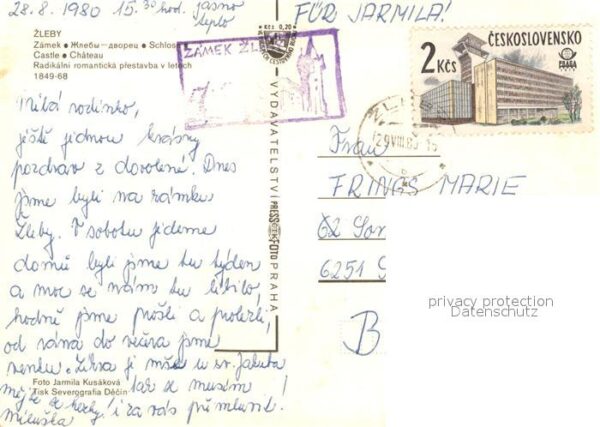 28.8.1980 15.30 hod. jasno
teplo
FÜR JARMILA!
ŽLEBY
Zámek • Жлебы—дворец • Schloss
Castle • Château
Radikální romantická přestavba v letech
1849-68
Kčs 0,20
ZÁMEK ŽL
ČESKOSLOVENSKO
2 Kčs
PRAGA
Milá rodinko,
ještě jednou krásný
pozdrav z dovolené. Dnes
jsme byli na zámku
Žleby. V sobotu jedeme
domů byli jsme tu týden
a moc se nám tu líbilo,
hodně jsme prošli a prolezli,
od rána do večera jsme
venku. Zítra je mše u sv. Jakuba
tak se musím
mějte se hezky! i za vás přimluvit.
Miluška
Foto Jarmila Kusáková
Tisk Severografia Děčín
VYDAVATELSTVÍ PRESSFOTO PRAHA
Frau
FRINGS MARIE
62
6251
B
privacy protection
Datenschutz